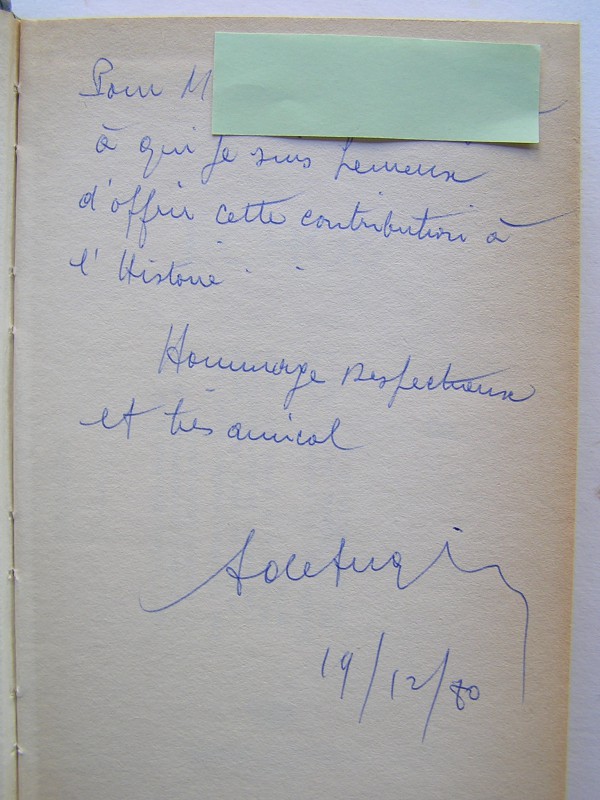 Pour M
à qui je suis heureux
d'offrir cette contribution à
l'Histoire.
Hommage respectueux
et très amical
19/12/80